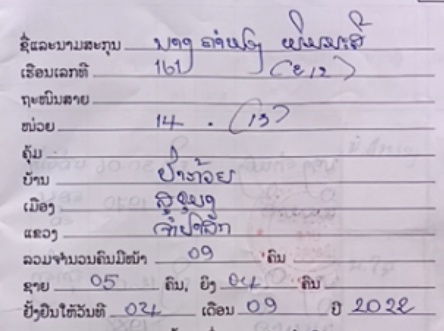 ຊື່ແລະນາມສະກຸນ ນາງ ຄຳຫຼ້າ
ເຮືອນເລກທີ 161
ຖະໜົນສາຍ
ໜ່ວຍ 14 . (13)
ຄຸ້ມ
ບ້ານ ປ່າກ້ວຍ
ເມືອງ ສຸຂຸມາ
ແຂວງ ຈຳປາສັກ
ລວມຈຳນວນຄົນມີໜ້າ 09 ຄົນ
ຊາຍ 05 ຄົນ, ຍິງ 04 ຄົນ
ຢັ້ງຢືນໃຫ້ວັນທີ 02 ເດືອນ 09 ປີ 2022